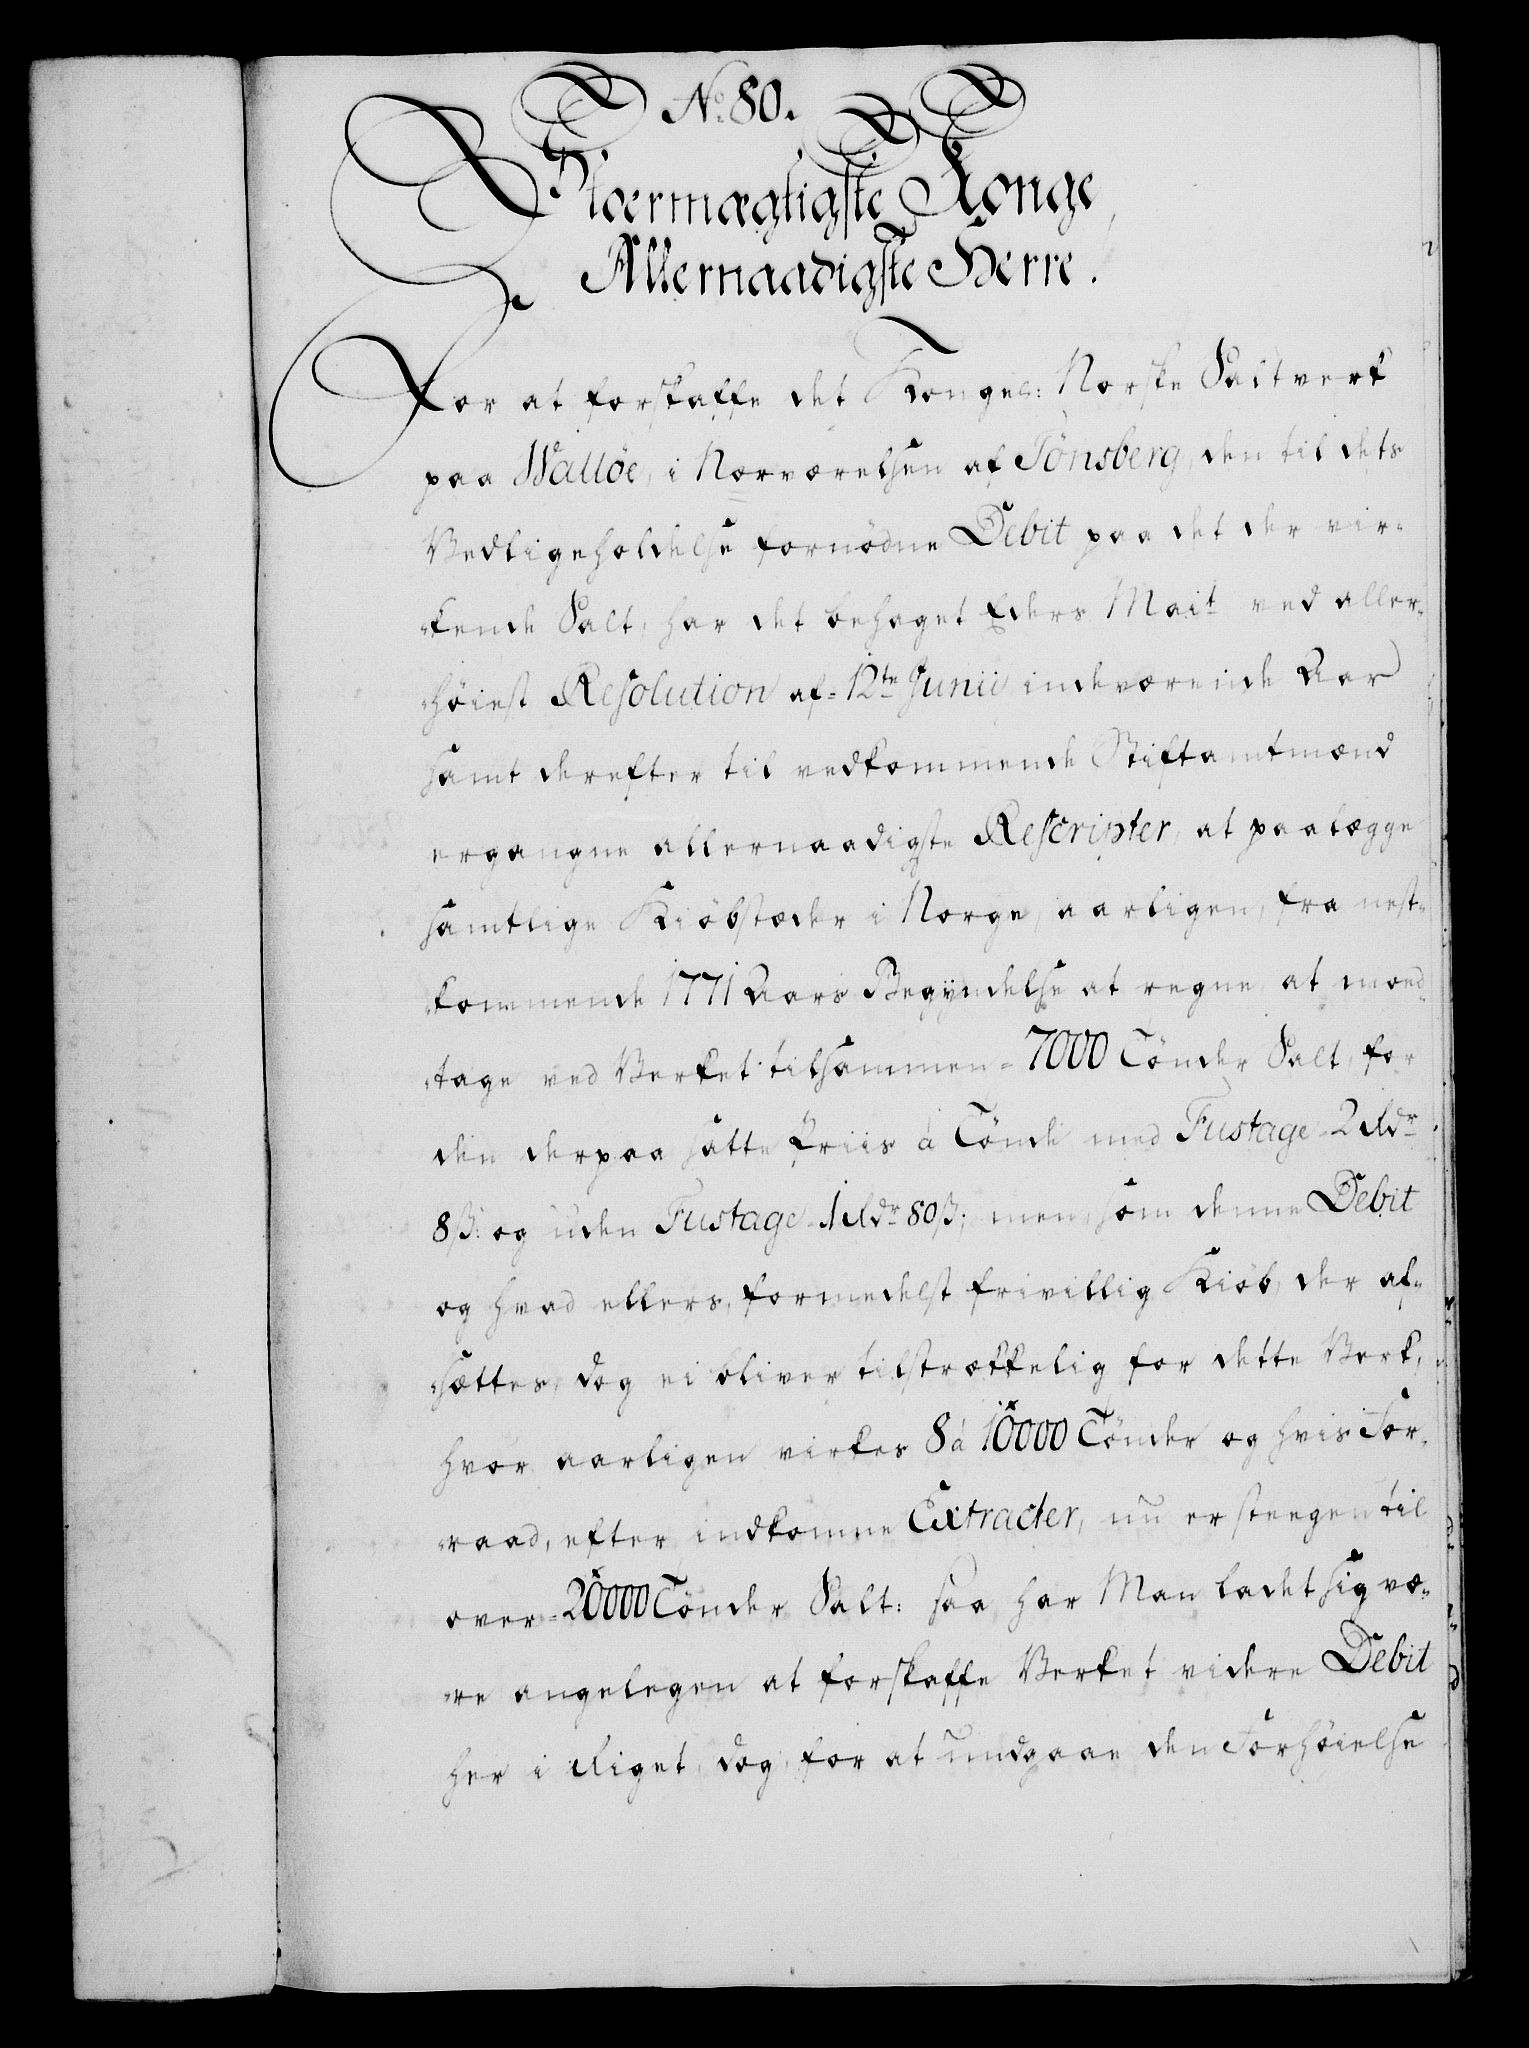 No. 80.
Stoermægtigste Konge,
Allernaadigste Herre.
For at forskaffe det Kongel: Norske Saltverk
paa Walløe, i Nærværelsen af Tönsberg, den til dets
Vedligeholdelse fornödne Debit paa det der vir-
-kende Salt, har det behaget Eders Mait ved aller-
-höiest Resolution af 12te Junii indeværende Aar
samt derefter til vedkommende Stiftamtmænd
ergangne allernaadigste Rescripter, at paalægge
samtlige Kiöbstæder i Norge, aarligen, fra nest-
-kommende 1771 Aars Begyndelse at regne, at mod-
-tage ved Verket tilsammen 7000 Tönder Salt, for
den derpaa satte Priis á Tönde med Fustage 2 Rdr
8 ß: og uden Fustage 1 Rdr 80 ß; men, som denne Debit
og hvad ellers, formedelst frivillig Kiöb, der af-
-sættes, dog ei bliver tilstrækkelig for dette Verk,
hvor aarligen virkes 8 á 10000 Tönder og hvis For-
-raad, efter indkomne Extracter, nu er steegen til
over 20000 Tönder Salt: saa har Man ladet sig væ-
-re angelegen at forskaffe Verket videre Debit
her i Riget, dog, for at undgaae den Forhöielse